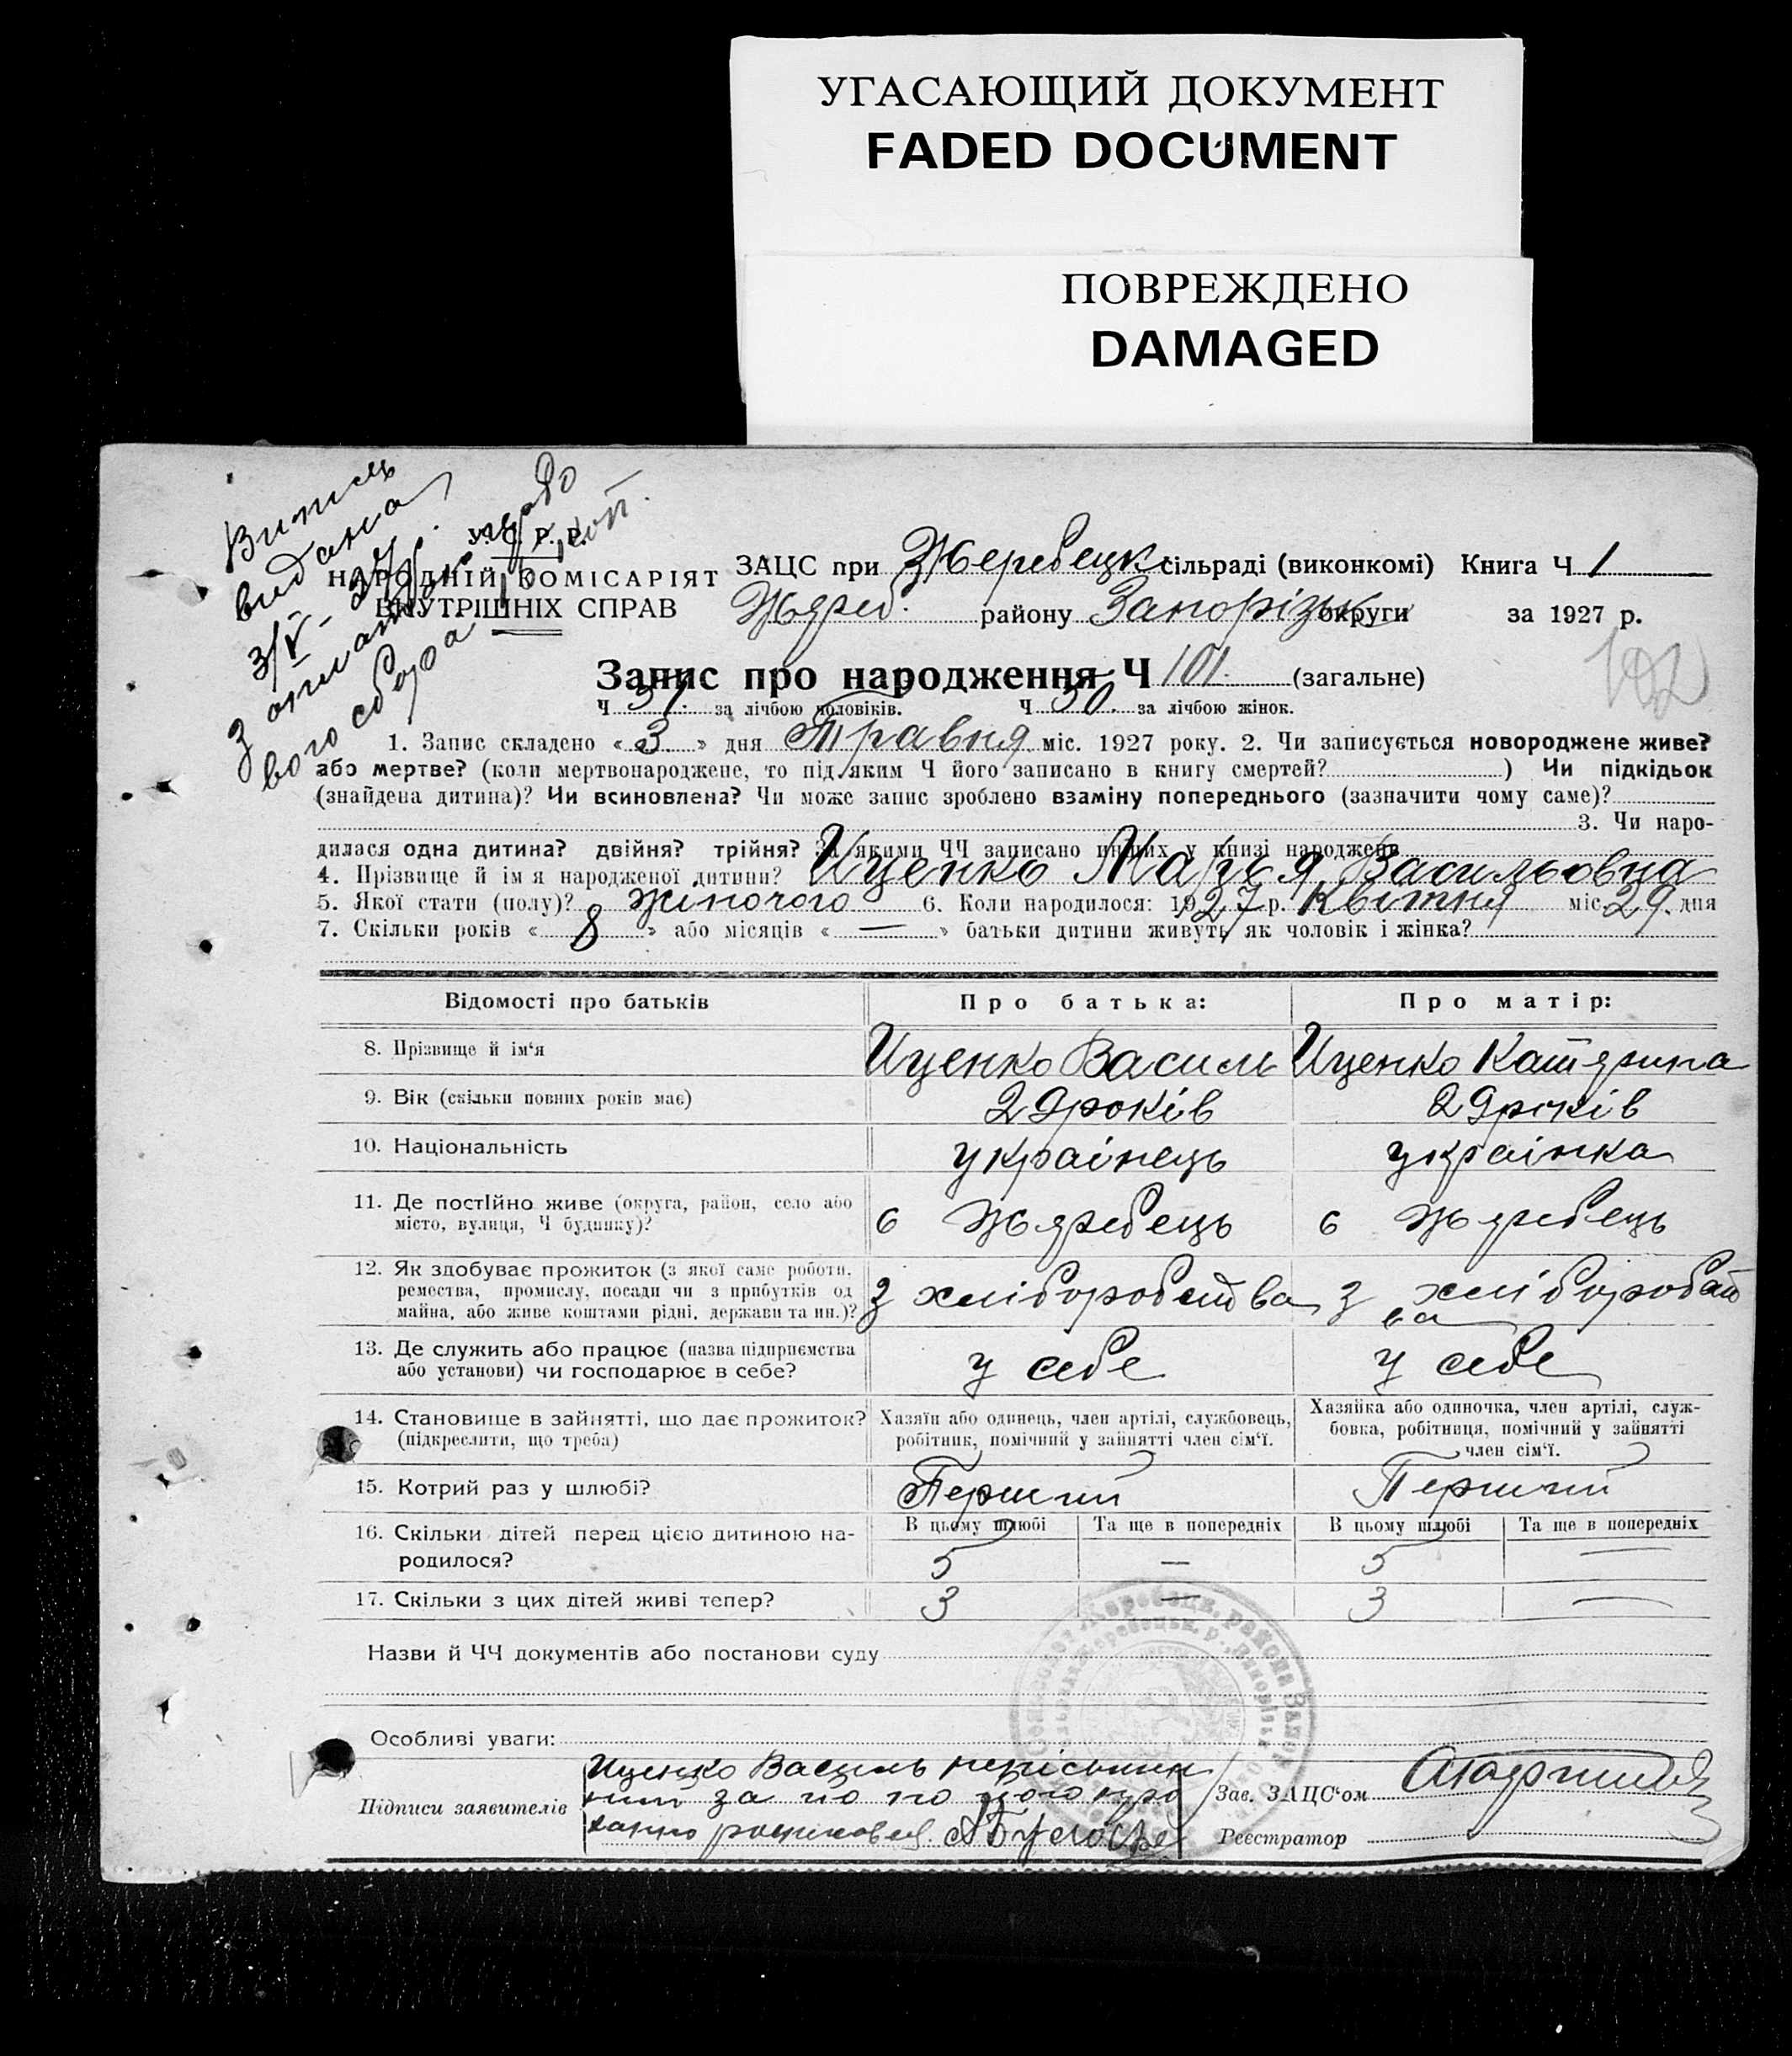 УГАСАЮЩИЙ ДОКУМЕНТ
FADED DOCUMENT
ПОВРЕЖДЕНО
DAMAGED
Випись
видана
3/V - 27
з оплатою
вого сбора
У. С. Р. Р.
НАРОДНІЙ КОМІСАРІЯТ
ВНУТРІШНІХ СПРАВ
ЗАЦС при Жеребецк сільраді (виконкомі) Книга Ч 1
Жереб. району Запорізьк округи за 1927 р.
Запис про народження Ч 101. (загальне)
102
Ч за лічбою чоловіків. Ч 50. за лічбою жінок.
1. Запис складено « 3 » дня Травня міс. 1927 року. 2. Чи записується новороджене живе?
або мертве? (коли мертвонароджене, то під яким Ч його записано в книгу смертей? ) Чи підкідьок
(знайдена дитина)? Чи всиновлена? Чи може запис зроблено взаміну попереднього (зазначити чому саме)?
3. Чи наро-
дилася одна дитина? двійня? трійня? За якими ЧЧ записано инших у книзі народжень
4. Прізвище й ім я народженої дитини? Иценко Мар'я Васильовна
5. Якої стати (полу)? Жіночого 6. Коли народилося: 1927 р. Квітня міс. 29. дня
7. Скільки років « 8 » або місяців « — » батьки дитини живуть як чоловік і жінка?
Відомості про батьків Про батька: Про матір:
8. Прізвище й ім'я Иценко Василь Иценко Катерина
9. Вік (скільки повних років має) 29 років 29 років
10. Національність українець українка
11. Де постійно живе (округа, район, село або
місто, вулиця, Ч будинку)? с Жеребець с Жеребець
12. Як здобуває прожиток (з якої саме роботи,
ремества, промислу, посади чи з прибутків од
майна, або живе коштами рідні, держави та ин.)? з хліборобства з хліборобства
13. Де служить або працює (назва підприємства
або установи) чи господарює в себе? у себе у себе
14. Становище в зайнятті, що дає прожиток?
(підкреслити, що треба)
Хазяїн або одинець, член артілі, службовець,
робітник, помічний у зайнятті член сім'ї.
Хазяйка або одиночка, член артілі, служ-
бовка, робітниця, помічний у зайнятті
член сім'ї.
15. Котрий раз у шлюбі? Перший Перший
16. Скільки дітей перед цією дитиною на-
родилося?
В цьому шлюбі Та ще в попередніх В цьому шлюбі Та ще в попередніх
5 — 5 —
17. Скільки з цих дітей живі тепер? 3 — 3 —
Назви й ЧЧ документів або постанови суду
Особливі уваги:
Підписи заявителів
Иценко Василь неписьмен
ний за по його про
Зав. ЗАЦС'ом
Реєстратор